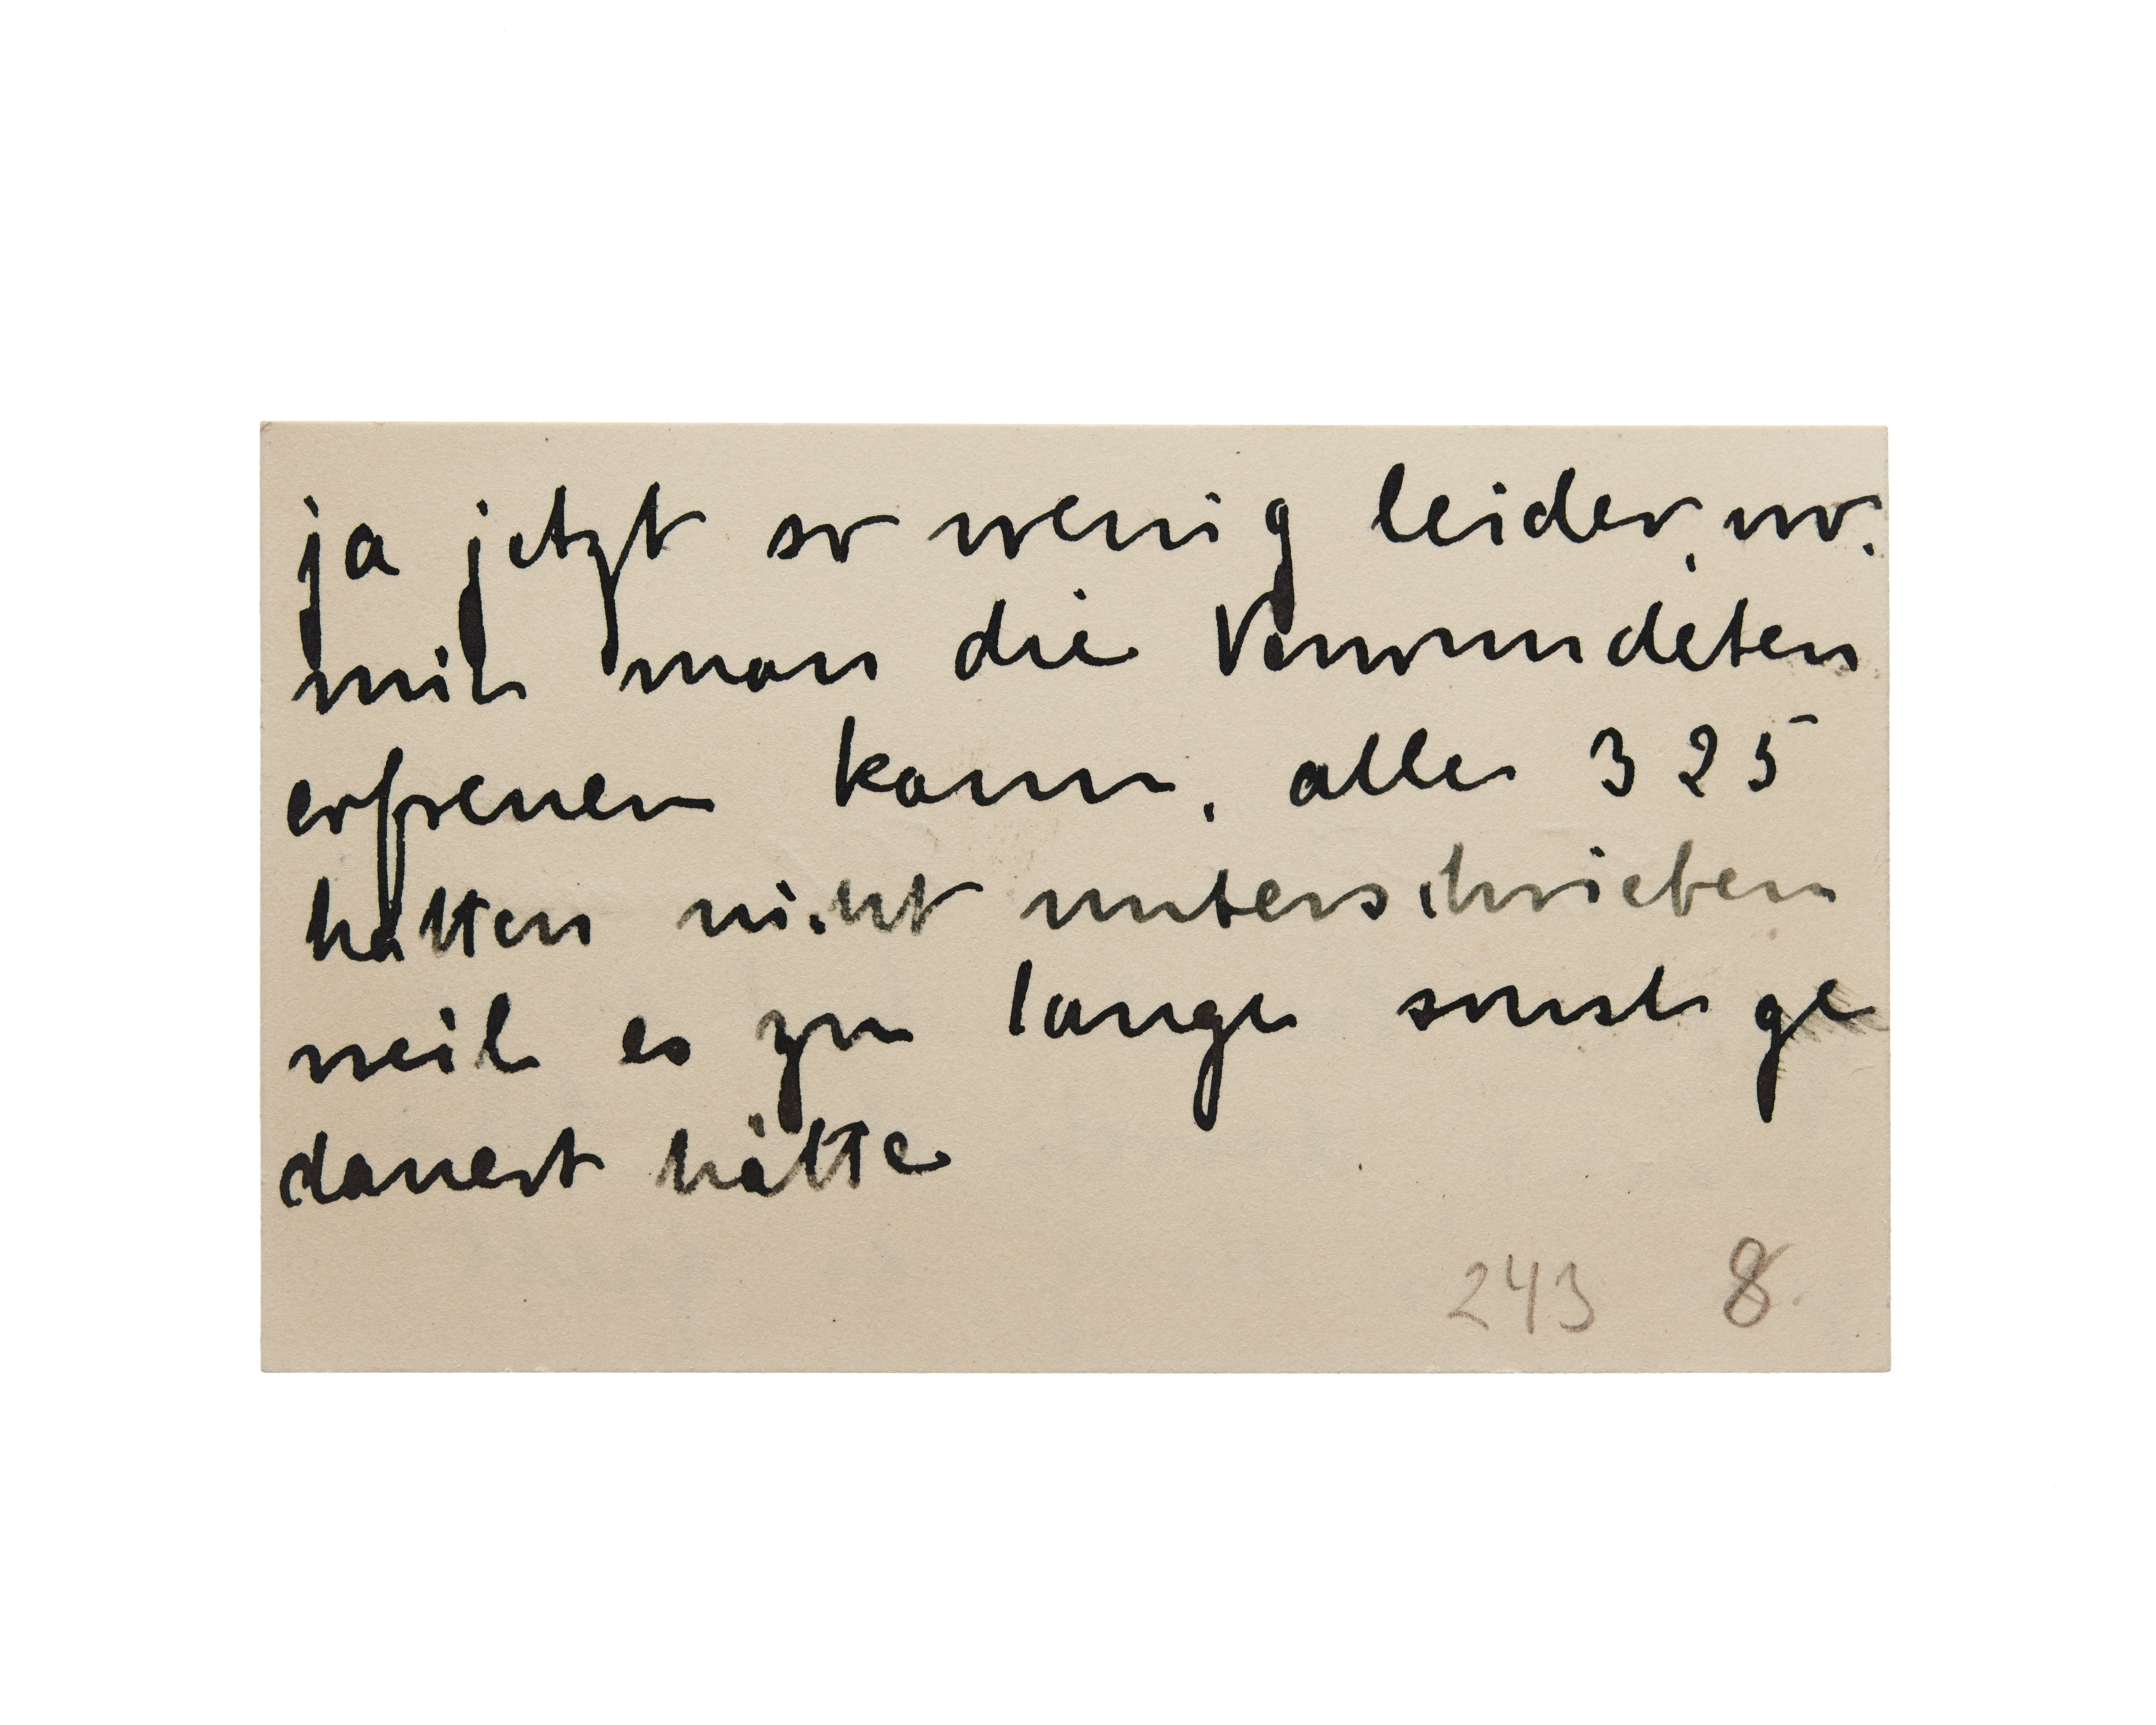 ja jetzt so wenig leider, wo:
mit man die Verwundeten
erfreuen kann, alle 325
hatten nicht unterschrieben
weil es zu lange sonst ge
dauert hätte
243 8.